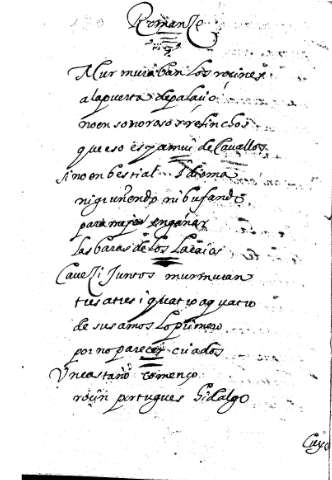 Romanse
Murmuraban los rocines
a la puerta de palacio
no en sonorosos relinchos
que eso es ya muy de Cavallos
Si no en bestial Idioma
ni gruñendo ni bufando
para mejor engañar
las baras de los Lacaios
Cavesi Juntos murmuran
tres a tres i quatro a quatro
de sus amos lo primero
por no parecer criados
Un castaño començo
rocin portugues hidalgo
Cuyo